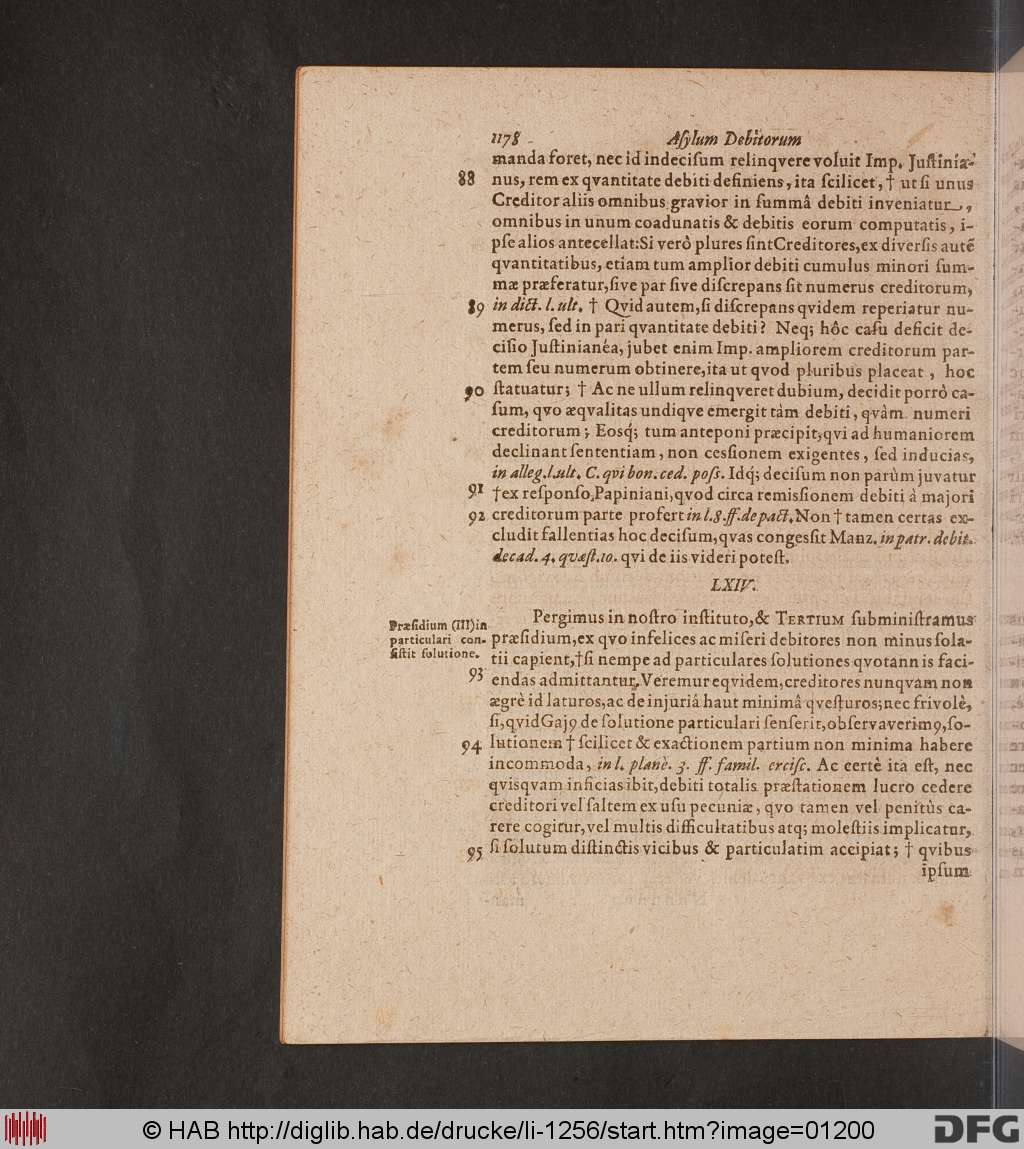 1178 Aſylum Debitorum
manda foret, nec id indeciſum relinqvere voluit Imp. Juſtinia-
88 nus, rem ex qvantitate debiti definiens, ita ſcilicet, † ut ſi unus
Creditor aliis omnibus gravior in ſummâ debiti inveniatur,
omnibus in unum coadunatis & debitis eorum computatis, i-
pſe alios antecellat: Si verò plures ſint Creditores, ex diverſis autē
qvantitatibus, etiam tum amplior debiti cumulus minori ſum-
mæ præferatur, ſive par ſive diſcrepans ſit numerus creditorum,
89 in dict. l. ult. † Qvid autem, ſi diſcrepans qvidem reperiatur nu-
merus, ſed in pari qvantitate debiti? Neq; hôc caſu deficit de-
ciſio Juſtinianéa, jubet enim Imp. ampliorem creditorum par-
tem ſeu numerum obtinere, ita ut qvod pluribus placeat, hoc
90 ſtatuatur; † Ac ne ullum relinqveret dubium, decidit porrò ca-
ſum, qvo æqvalitas undiqve emergit tàm debiti, qvàm numeri
creditorum; Eosq́; tum anteponi præcipit, qvi ad humaniorem
declinant ſententiam, non cesſionem exigentes, ſed inducias,
in alleg. l. ult. C. qvi bon. ced. poſs. Idq́; deciſum non parùm juvatur
91 † ex reſponſo, Papiniani, qvod circa remisſionem debiti à majori
92 creditorum parte profert in l. 8. ff. de pact. Non † tamen certas ex-
cludit fallentias hoc deciſum, qvas congesſit Manz. in patr. debit.
decad. 4. qvæſt. 10. qvi de iis videri poteſt.
LXIV.
Præſidium (III) in
particulari con-
ſiſtit ſolutione.
Pergimus in noſtro inſtituto, & TERTIUM ſubminiſtramus
præſidium, ex qvo infelices ac miſeri debitores non minus ſola-
tii capient, † ſi nempe ad particulares ſolutiones qvotannis faci-
93 endas admittantur. Veremur eqvidem, creditores nunqvam non
ægrè id laturos, ac de injuriâ haut minimâ qveſturos; nec frivolè,
ſi, qvid Gajꝰ de ſolutione particulari ſenſerit, obſervaverimꝰ, ſo-
94 lutionem † ſcilicet & exactionem partium non minima habere
incommoda, in l. planè. 3. ff. famil. erciſc. Ac certè ita eſt, nec
qvisqvam inficias ibit, debiti totalis præſtationem lucro cedere
creditori vel ſaltem ex uſu pecuniæ, qvo tamen vel penitùs ca-
rere cogitur, vel multis difficultatibus atq; moleſtiis implicatur,
95 ſi ſolutum diſtinctis vicibus & particulatim accipiat; † qvibus
ipſum
© HAB http://diglib.hab.de/drucke/li-1256/start.htm?image=01200
DFG